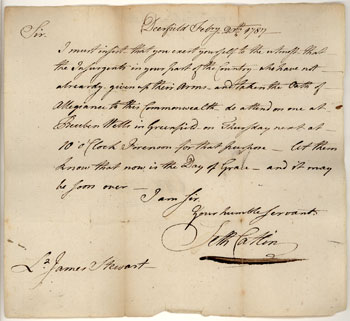 Deerfield Feby 20th 1787
Sir.
I must insist that you exert yourself to the utmost that
the Insurgents in your part of the Country, who have not
already given up their Arms and taken the Oath of
Allegiance to this Commonwealth do attend on one at
Reuben Wells in Greenfield on Thursday next at
10 o'Clock Forenoon for that purpose — let them
know that now is the Day of Grace — and it may
be soon over —
I am Sir
Your humble Servant
Seth Catlin
Lt James Stewart